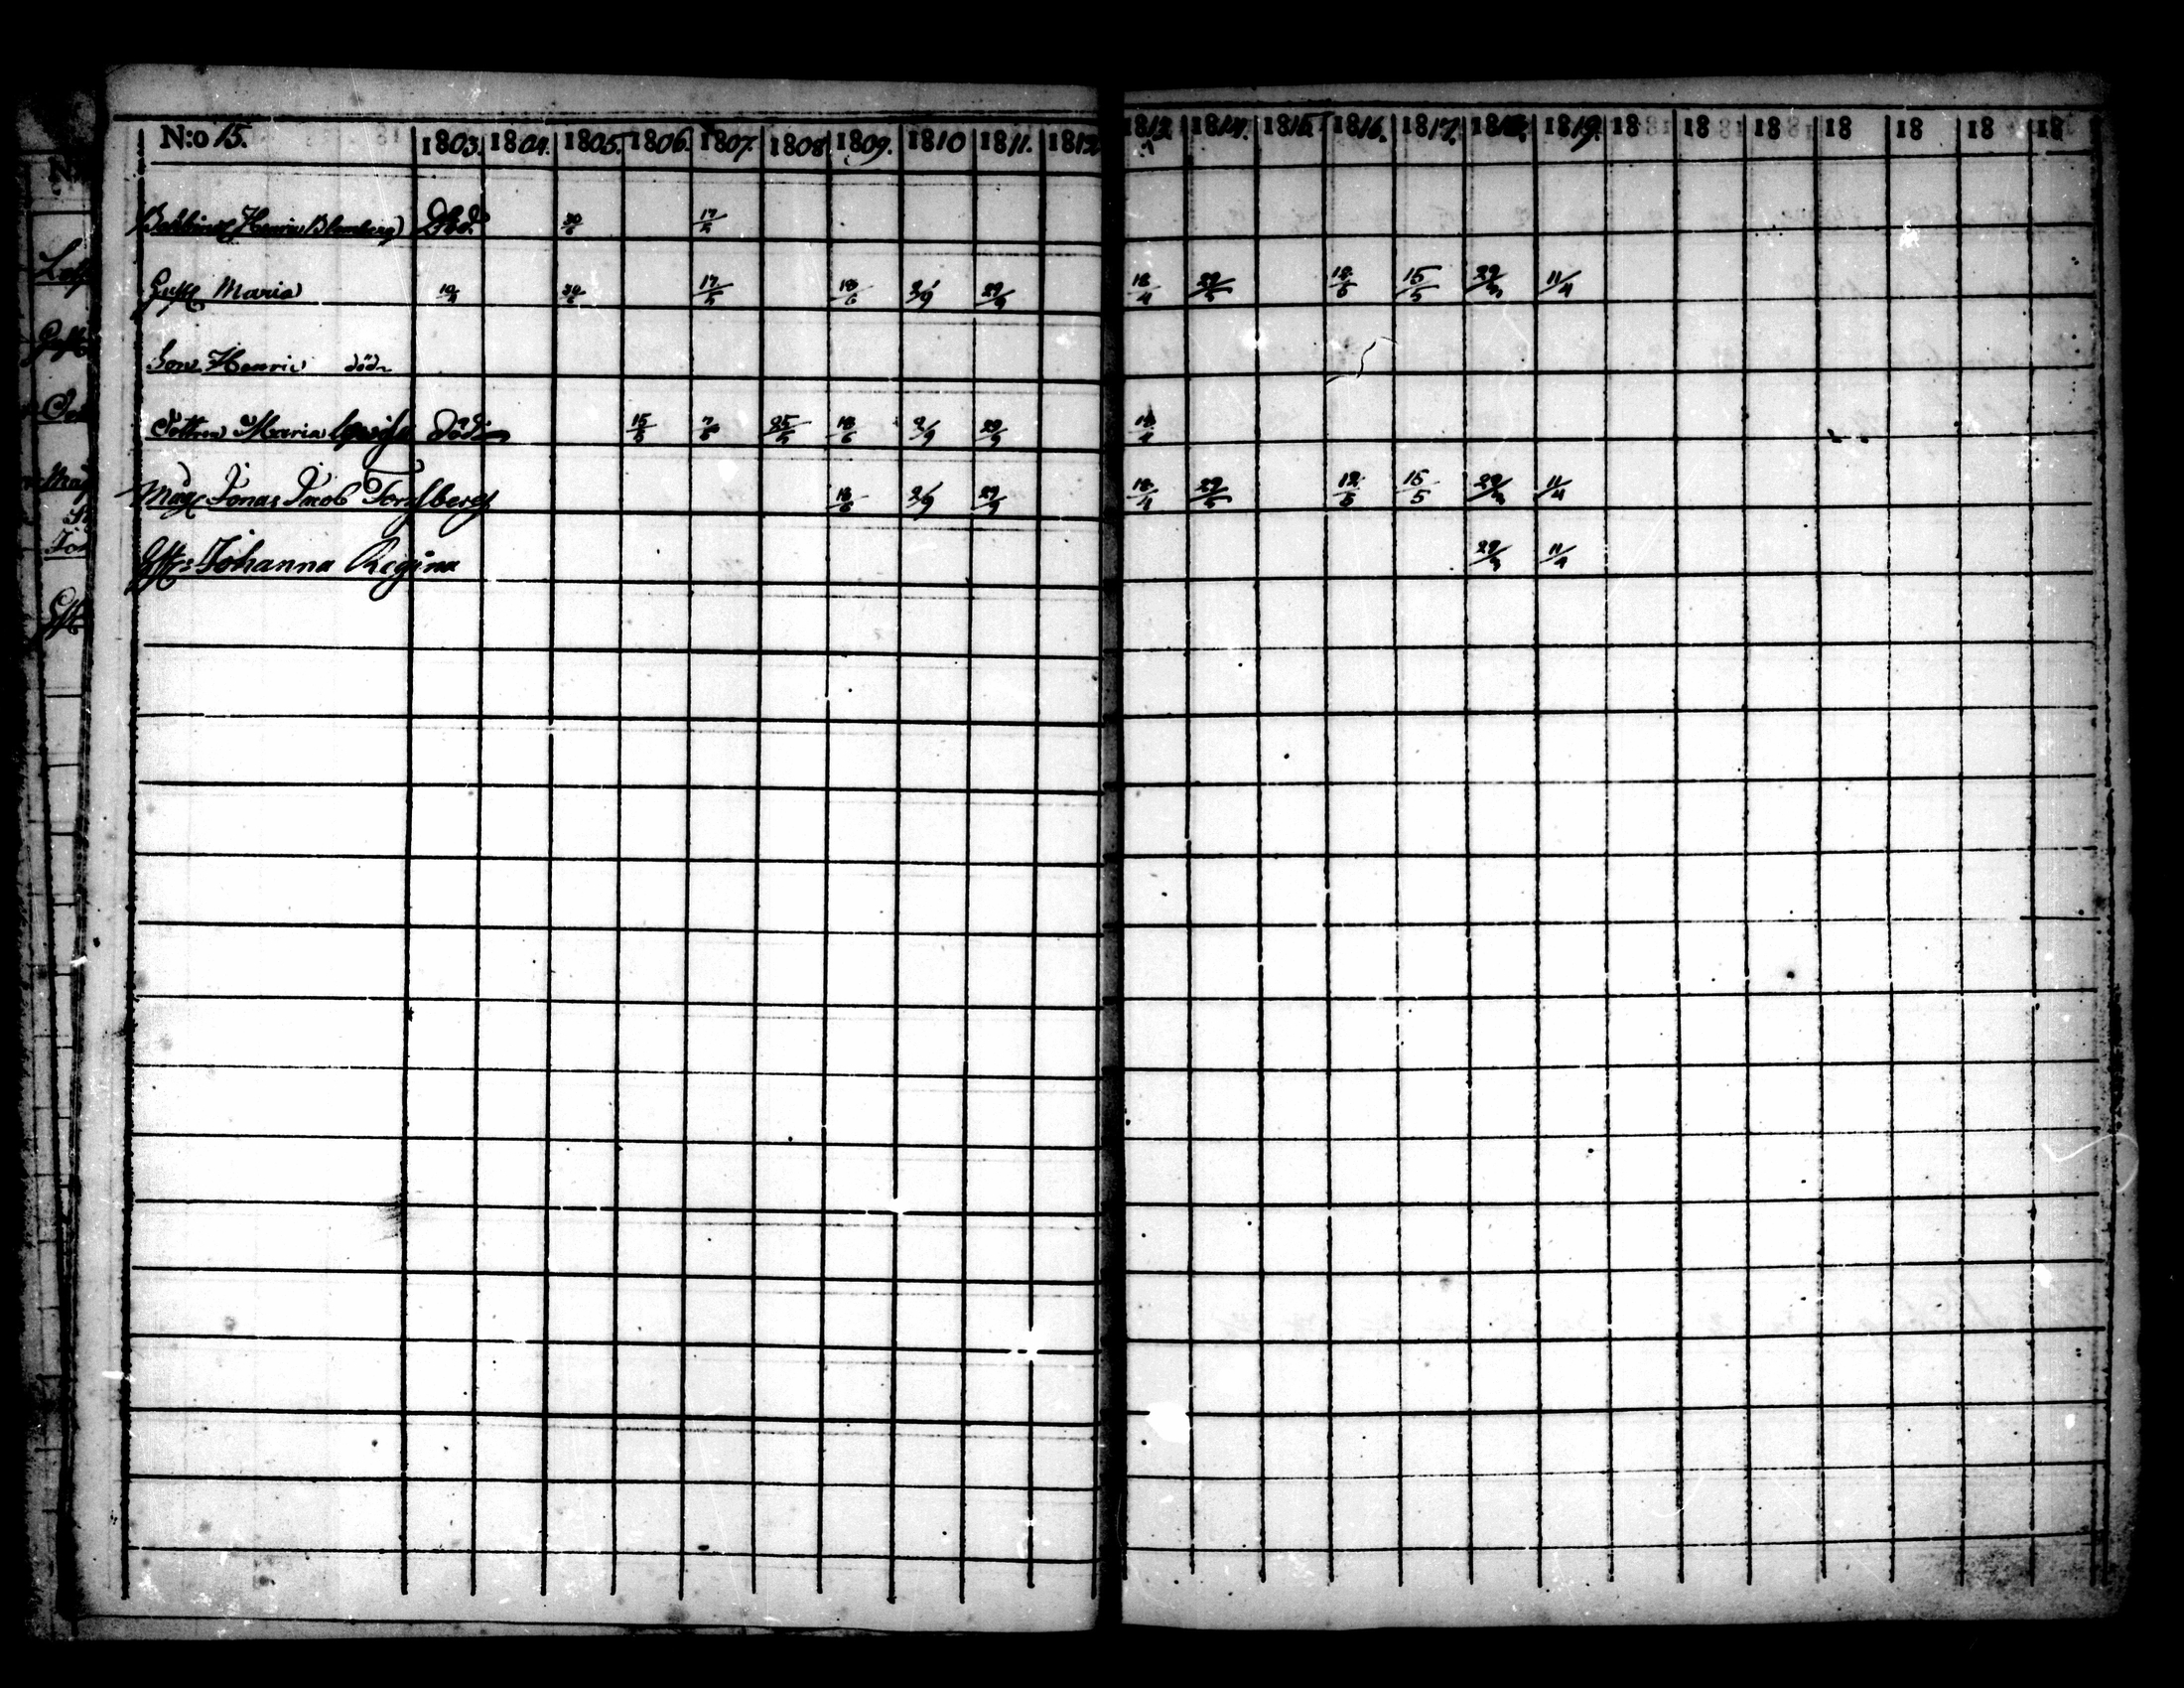 N:o 15. 1803. 1804. 1805. 1806. 1807. 1808 1809. 1810 1811. 1812 1813. 1814. 1815. 1816. 1817. 1818. 1819. 18 18 18 18 18 18 18
Henric Blomberg) 30/6 17/5
Maria 17/5 18/6 2/9 29/9 18/4 29/5 12/5 15/5 29/3 11/4
Son Henric död
Dottren Maria död 15/5 25/5 18/6 2/9 29/9 18/4
Mag. Jonas Jacob 18/6 2/9 29/9 18/4 29/5 12/5 15/5 29/3 11/4
Johanna Regina 29/3 11/4